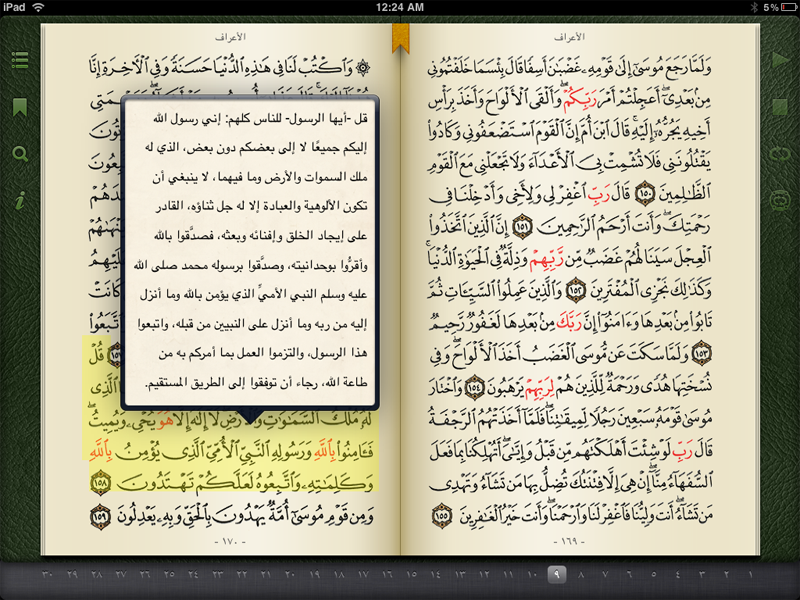 iPad 12:24 AM 5%
الأعراف
وَلَمَّا رَجَعَ مُوسَىٰٓ إِلَىٰ قَوْمِهِۦ غَضْبَٰنَ أَسِفًا قَالَ بِئْسَمَا خَلَفْتُمُونِى
مِنۢ بَعْدِىٓ ۖ أَعَجِلْتُمْ أَمْرَ رَبِّكُمْ ۖ وَأَلْقَى ٱلْأَلْوَاحَ وَأَخَذَ بِرَأْسِ
أَخِيهِ يَجُرُّهُۥٓ إِلَيْهِ ۚ قَالَ ٱبْنَ أُمَّ إِنَّ ٱلْقَوْمَ ٱسْتَضْعَفُونِى وَكَادُوا۟
يَقْتُلُونَنِى فَلَا تُشْمِتْ بِىَ ٱلْأَعْدَآءَ وَلَا تَجْعَلْنِى مَعَ ٱلْقَوْمِ
ٱلظَّٰلِمِينَ ١٥٠ قَالَ رَبِّ ٱغْفِرْ لِى وَلِأَخِى وَأَدْخِلْنَا فِى
رَحْمَتِكَ ۖ وَأَنتَ أَرْحَمُ ٱلرَّٰحِمِينَ ١٥١ إِنَّ ٱلَّذِينَ ٱتَّخَذُوا۟
ٱلْعِجْلَ سَيَنَالُهُمْ غَضَبٌ مِّن رَّبِّهِمْ وَذِلَّةٌ فِى ٱلْحَيَوٰةِ ٱلدُّنْيَا ۚ
وَكَذَٰلِكَ نَجْزِى ٱلْمُفْتَرِينَ ١٥٢ وَٱلَّذِينَ عَمِلُوا۟ ٱلسَّيِّـَٔاتِ ثُمَّ
تَابُوا۟ مِنۢ بَعْدِهَا وَءَامَنُوٓا۟ إِنَّ رَبَّكَ مِنۢ بَعْدِهَا لَغَفُورٌ رَّحِيمٌ
١٥٣ وَلَمَّا سَكَتَ عَن مُّوسَى ٱلْغَضَبُ أَخَذَ ٱلْأَلْوَاحَ ۖ وَفِى
نُسْخَتِهَا هُدًى وَرَحْمَةٌ لِّلَّذِينَ هُمْ لِرَبِّهِمْ يَرْهَبُونَ ١٥٤ وَٱخْتَارَ
مُوسَىٰ قَوْمَهُۥ سَبْعِينَ رَجُلًا لِّمِيقَٰتِنَا ۖ فَلَمَّآ أَخَذَتْهُمُ ٱلرَّجْفَةُ
قَالَ رَبِّ لَوْ شِئْتَ أَهْلَكْتَهُم مِّن قَبْلُ وَإِيَّٰىَ ۖ أَتُهْلِكُنَا بِمَا فَعَلَ
ٱلسُّفَهَآءُ مِنَّآ ۖ إِنْ هِىَ إِلَّا فِتْنَتُكَ تُضِلُّ بِهَا مَن تَشَآءُ وَتَهْدِى
مَن تَشَآءُ ۖ أَنتَ وَلِيُّنَا فَٱغْفِرْ لَنَا وَٱرْحَمْنَا ۖ وَأَنتَ خَيْرُ ٱلْغَٰفِرِينَ ١٥٥
- ١٦٩ -
الأعراف
۞ وَٱكْتُبْ لَنَا فِى هَٰذِهِ ٱلدُّنْيَا حَسَنَةً وَفِى ٱلْءَاخِرَةِ إِنَّا
قل -أيها الرسول- للناس كلهم: إني رسول الله
إليكم جميعًا لا إلى بعضكم دون بعض، الذي له
ملك السموات والأرض وما فيهما، لا ينبغي أن
تكون الألوهية والعبادة إلا له جل ثناؤه، القادر
على إيجاد الخلق وإفنائه وبعثه، فصدَّقوا بالله
وأقرُّوا بوحدانيته، وصدَّقوا برسوله محمد صلى الله
عليه وسلم النبي الأميِّ الذي يؤمن بالله وما أنزل
إليه من ربه وما أنزل على النبيين من قبله، واتبعوا
هذا الرسول، والتزموا العمل بما أمركم به من
طاعة الله، رجاء أن توفقوا إلى الطريق المستقيم.
قُلْ
ٱلَّذِى
لَهُۥ مُلْكُ ٱلسَّمَٰوَٰتِ وَٱلْأَرْضِ ۖ لَآ إِلَٰهَ إِلَّا هُوَ يُحْىِۦ وَيُمِيتُ ۖ
فَـَٔامِنُوا۟ بِٱللَّهِ وَرَسُولِهِ ٱلنَّبِىِّ ٱلْأُمِّىِّ ٱلَّذِى يُؤْمِنُ بِٱللَّهِ
وَكَلِمَٰتِهِۦ وَٱتَّبِعُوهُ لَعَلَّكُمْ تَهْتَدُونَ ١٥٨
وَمِن قَوْمِ مُوسَىٰٓ أُمَّةٌ يَهْدُونَ بِٱلْحَقِّ وَبِهِۦ يَعْدِلُونَ ١٥٩
- ١٧٠ -
١ ٢ ٣ ٤ ٥ ٦ ٧ ٨ ٩ ١٠ ١١ ١٢ ١٣ ١٤ ١٥ ١٦ ١٧ ١٨ ١٩ ٢٠ ٢١ ٢٢ ٢٣ ٢٤ ٢٥ ٢٦ ٢٧ ٢٨ ٢٩ ٣٠